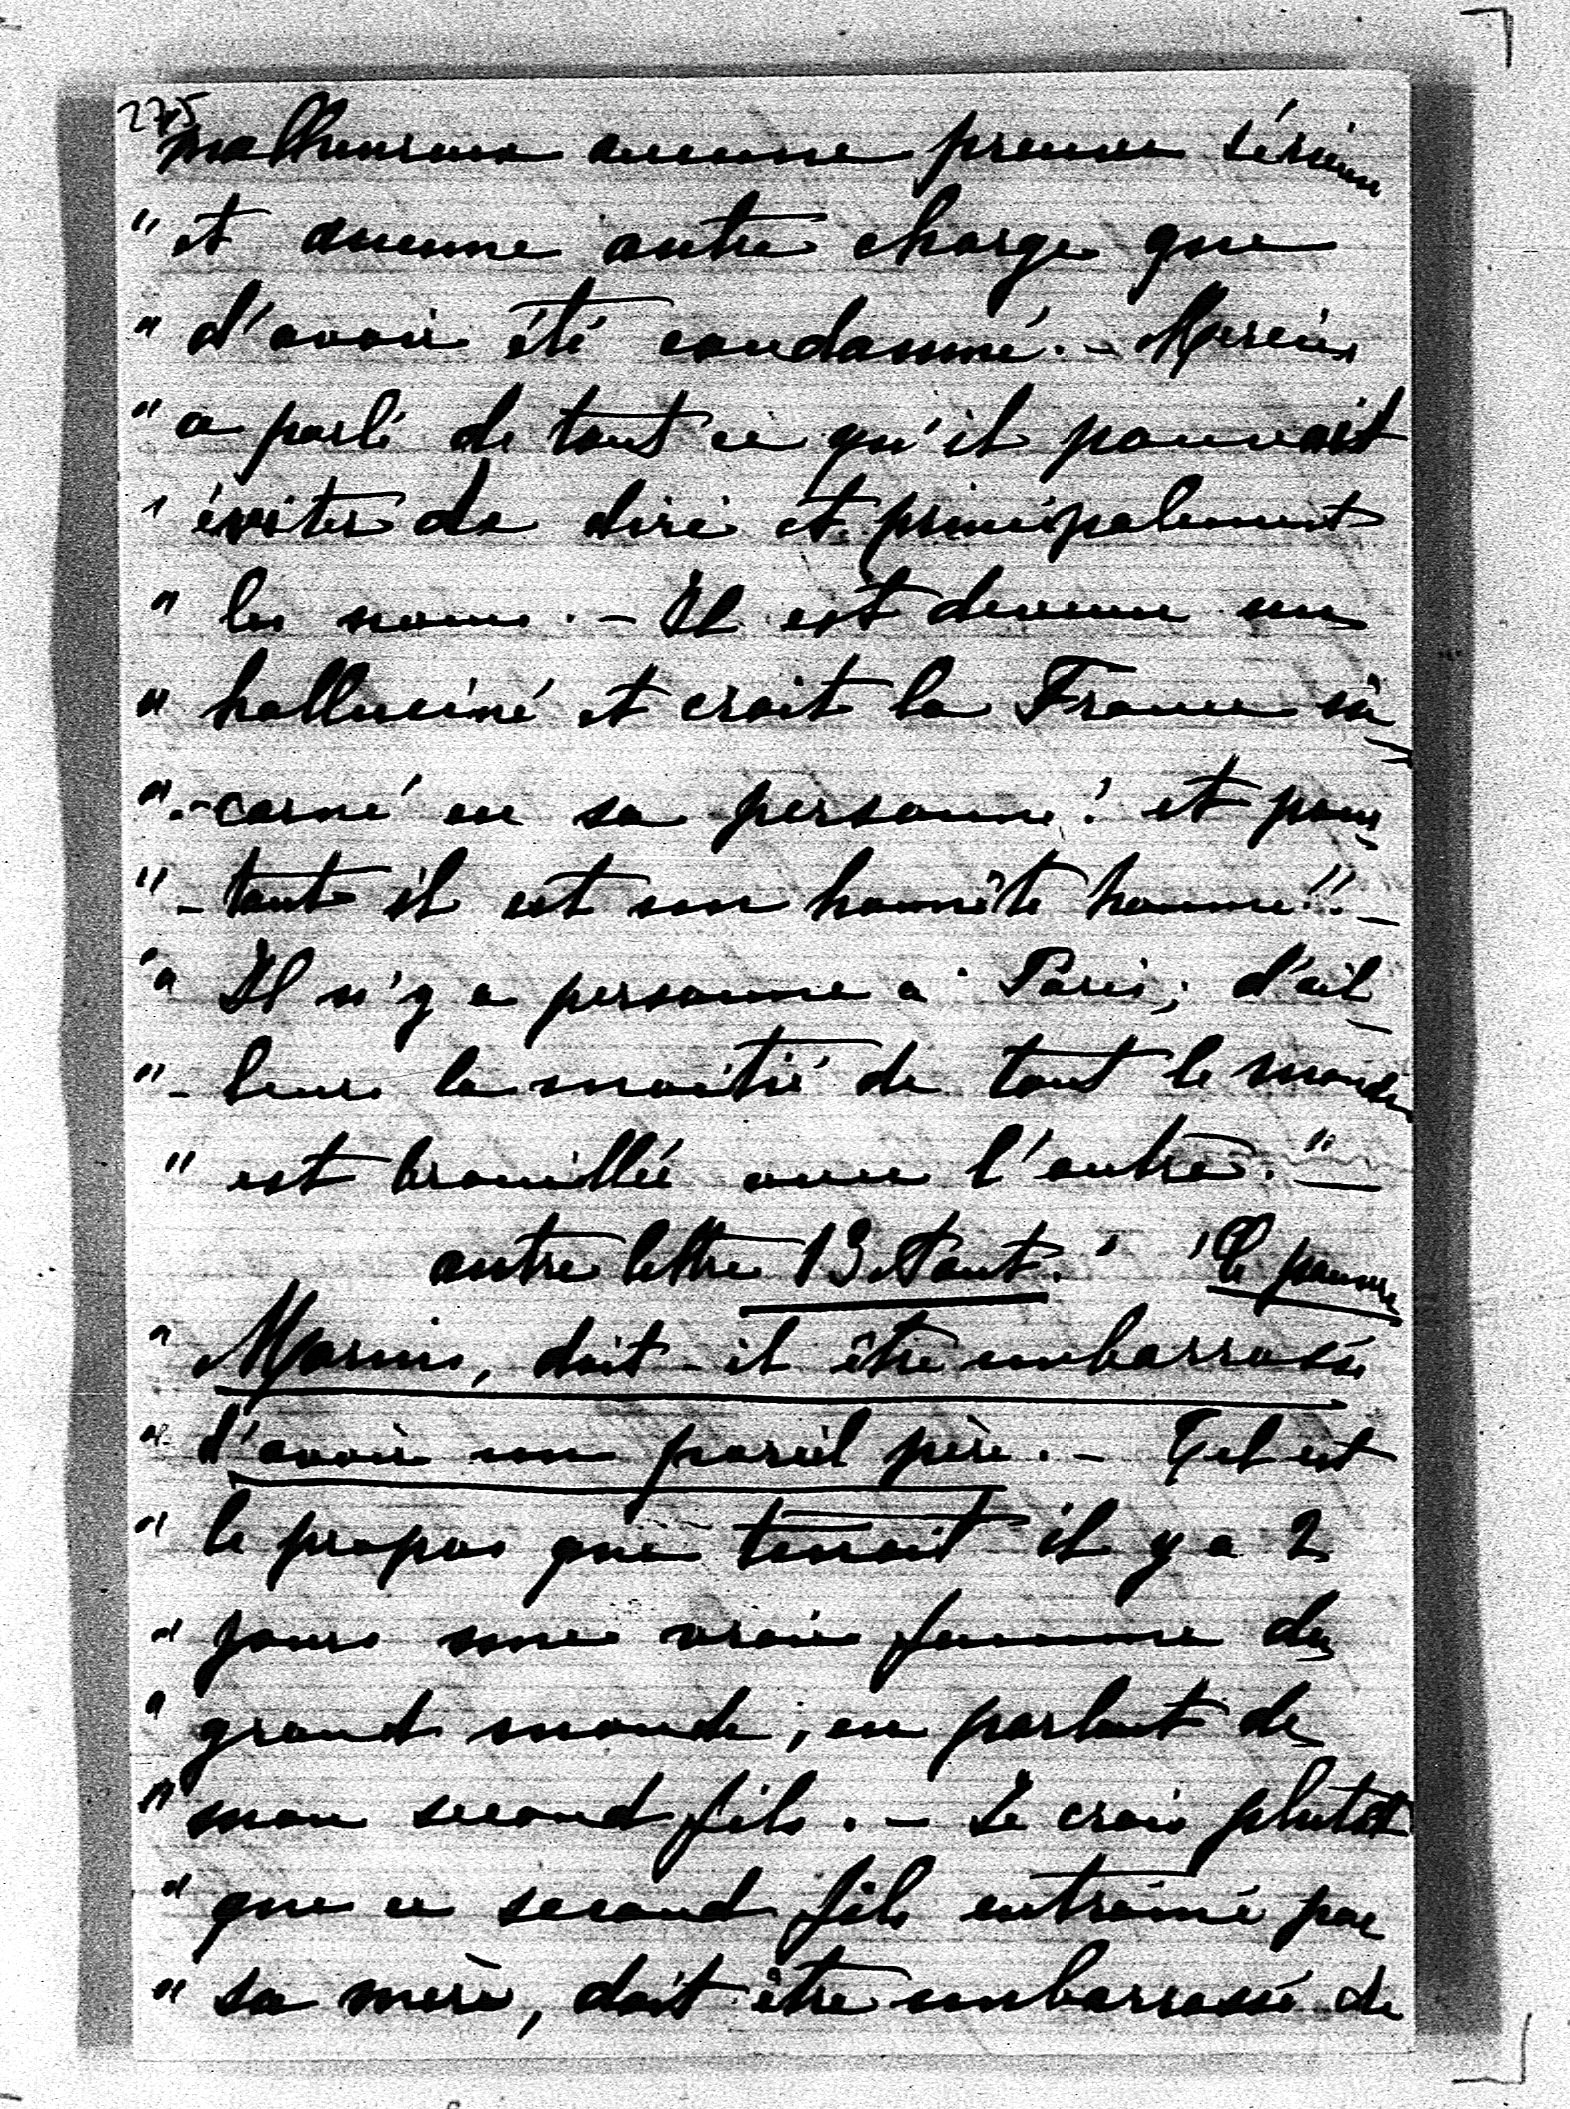 275
malheureux aucune preuve sérieuse
" et aucune autre charge que
" d'avoir été condamné. - Mercier
" a parlé de tout ce qu'il pouvait
" éviter de dire et principalement
" les noms. - Il est devenu un
" halluciné et croit la France in
" - carné en sa personne! et pour
" - tant il est un honnête homme!! -
" Il n'y a personne à Paris; d'ail
" - leurs la moitié de tout le monde
" est brouillée avec l'autre." -
autre lettre 13 Aout. " "Ce pauvre
" Marius, doit-il être embarrassé
" d'avoir un pareil père. - Tel est
" le propos que tenait il y a 2
" jours une vraie femme du
" grand monde, en parlant de
" mon second fils. - Je crois plutot
" que ce second fils entrainé par
" sa mère, doit être embarrassé de